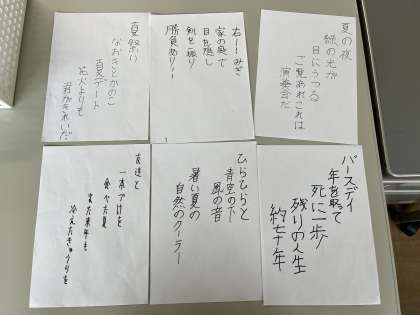 夏の夜
緑の光が
目にうつる
ご覧あれこれは
演奏会だ
右ーーみぎ
家の奥で
目を隠し
剣を振り
勝負あり!!
夏祭り
なおきとかのこ
夏デート
花火よりも
君がきれいだ
バースデイ
年を取って
死に一歩
残りの人生
約七十年
ひらひらと
青空の下
風の音
暑い夏の
自然のクーラー
友達と
一本づけを
食べた夏
また来年も
冷えたきゅうりを